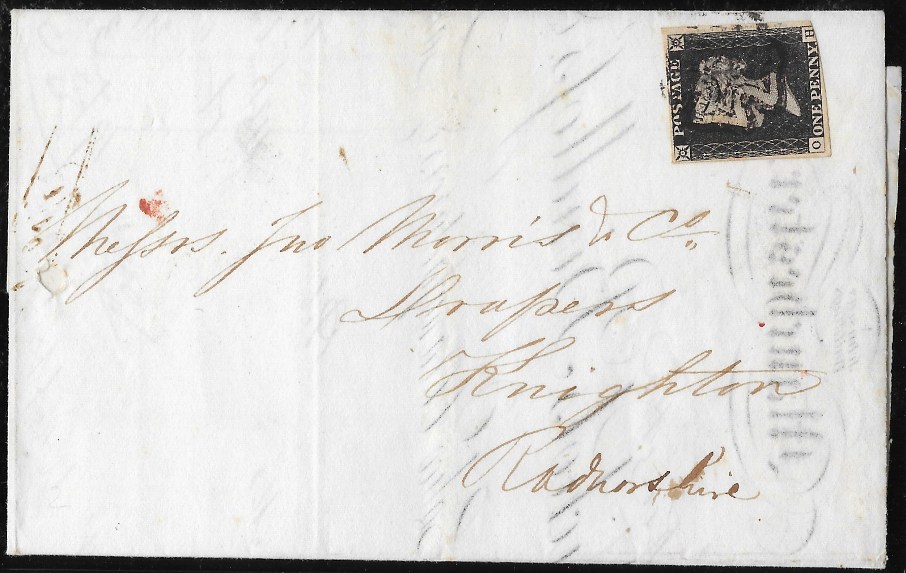 POSTAGE
ONE PENNY
O H
Messrs. Jno Morris & Co.
Drapers
Knighton
Radnorshire